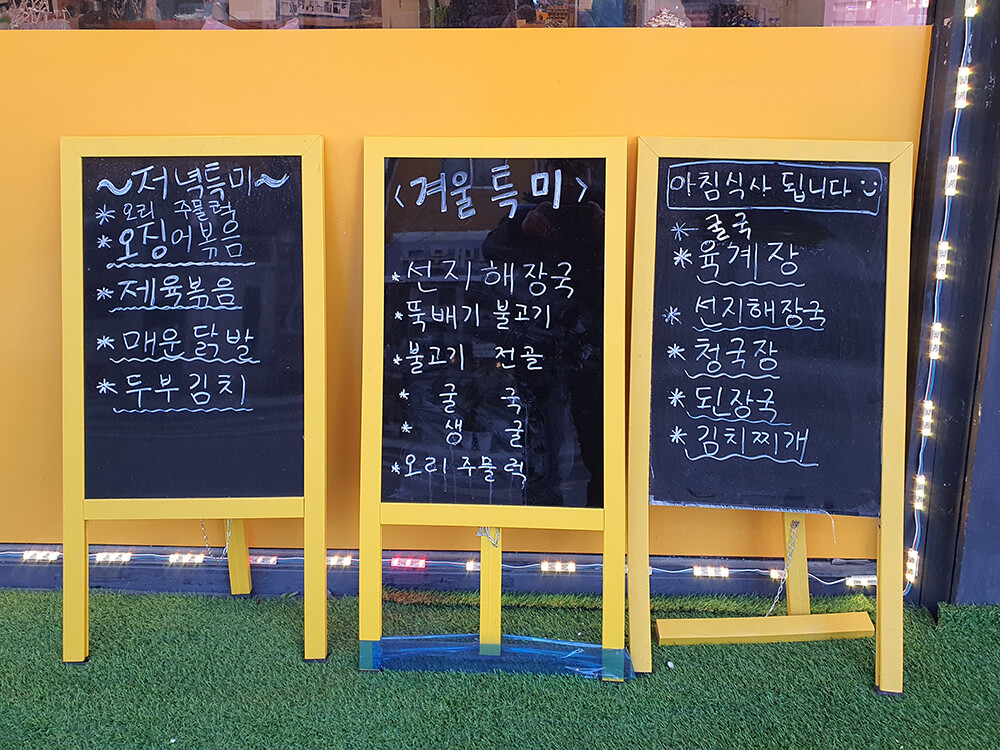 ~저녁특미~
* 오리 주물럭
* 오징어볶음
* 제육볶음
* 매운닭발
* 두부김치
<겨울특미>
* 선지해장국
* 뚝배기 불고기
* 불고기 전골
* 굴 국
* 생 굴
* 오리주물럭
아침식사 됩니다
* 굴국
* 육계장
* 선지해장국
* 청국장
* 된장국
* 김치찌개